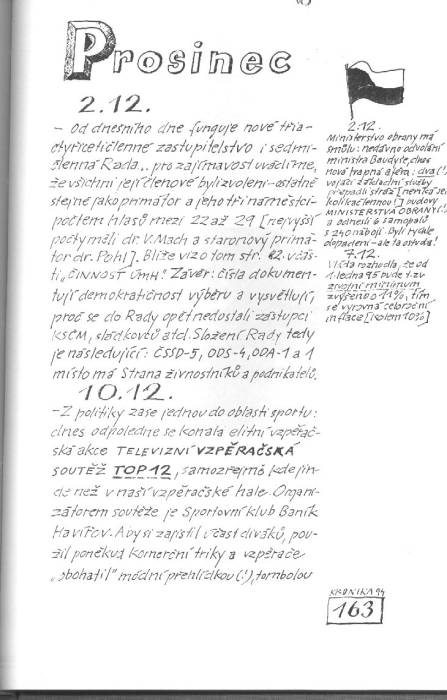 Prosinec
2.12.
- Od dnešního dne funguje nové tria-
čtyřicetičlenné zastupitelstvo i sedmi-
členná Rada... pro zajímavost uvádíme,
že všichni její členové byli zvoleni-ostatně
stejně jako primátor a jeho tři náměstci-
počtem hlasů mezi 22 až 29 [nejvyšší
počty měli dr. V. Mach a staronový primá-
tor dr. Pohl]. Blíže viz o tom str. 82. v čás-
ti „ČINNOST ÚMH“. Závěr: čísla dokumen-
tují demokratičnost výběru a vysvětlují,
proč se do Rady opět nedostali zástupci
KSČM, sládkovců atd. Složení Rady tedy
je následující: ČSSD-5, ODS-4, ODA-1 a 1
místo má Strana živnostníků a podnikatelů.
10.12.
- Z politiky zase jednou do oblasti sportu:
dnes odpoledne se konala elitní vzpěrač-
ská akce TELEVIZNÍ VZPĚRAČSKÁ
SOUTĚŽ TOP 12, samozřejmě kde jin-
de než v naší vzpěračské hale. Organi-
zátorem soutěže je Sportovní klub Baník
Havířov. Aby si zajistil účast diváků, pou-
žil poněkud komerční triky a vzpěrače
„obohatil“ módní přehlídkou (!), tombolou
2.12.
Ministerstvo obrany má
smůlu: nedávno odvolání
ministra Baudyše, dnes
nová trapná aféra: dva (!)
vojáci základní služby
přepadli stráž [není to je
kolikačlennou!] budovy
MINISTERSTVA OBRANY (!)
a odnesli 6 samopalů
s 240 náboji. Byli rychle
dopadeni - ale ta ostuda!
7.12.
Vláda rozhodla, že od
1. ledna 95 bude tzv.
životní minimum
zvýšeno o 11%, tím
se vyrovná celoroční
inflace [kolem 10%]
KRONIKA 94
163